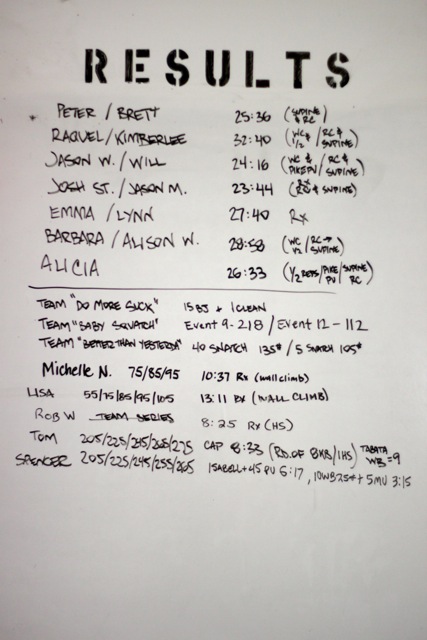 RESULTS
PETER / BRETT 25:36 (SUPINE & RC)
RAQUEL/KIMBERLEE 32:40 (WC & 1/2 / RC & SUPINE)
JASON W. / WILL 24:16 (WC & PIKE PU / RC & SUPINE)
JOSH ST. / JASON M. 23:44 (RC & SUPINE)
EMMA / LYNN 27:40 Rx
BARBARA / ALISON W. 28:58 (WC 1/2 / RC → SUPINE)
ALICIA 26:33 (1/2 REPS/PIKE PU/SUPINE RC)
TEAM "DO MORE SUCK" 15 BJ + 1 CLEAN
TEAM "BABY SQUATCH" Event 9-218 / Event 12-112
TEAM "BETTER THAN YESTERDAY" 40 SNATCH 135# / 5 SNATCH 105#
Michelle N. 75/85/95 10:37 Rx (wall climb)
LISA 55/75/85/95/105 13:11 RX (WALL CLIMB)
ROB W TEAM SERIES 8:25 RX (HS)
TOM 205/225/245/265/275 CAP 8:33 (RD. OF 8KB/1HS) TABATA WB = 9
SPENCER 205/225/245/255/265 15 + 45 PU 6:17, 10WB 25# + 5MU 3:15